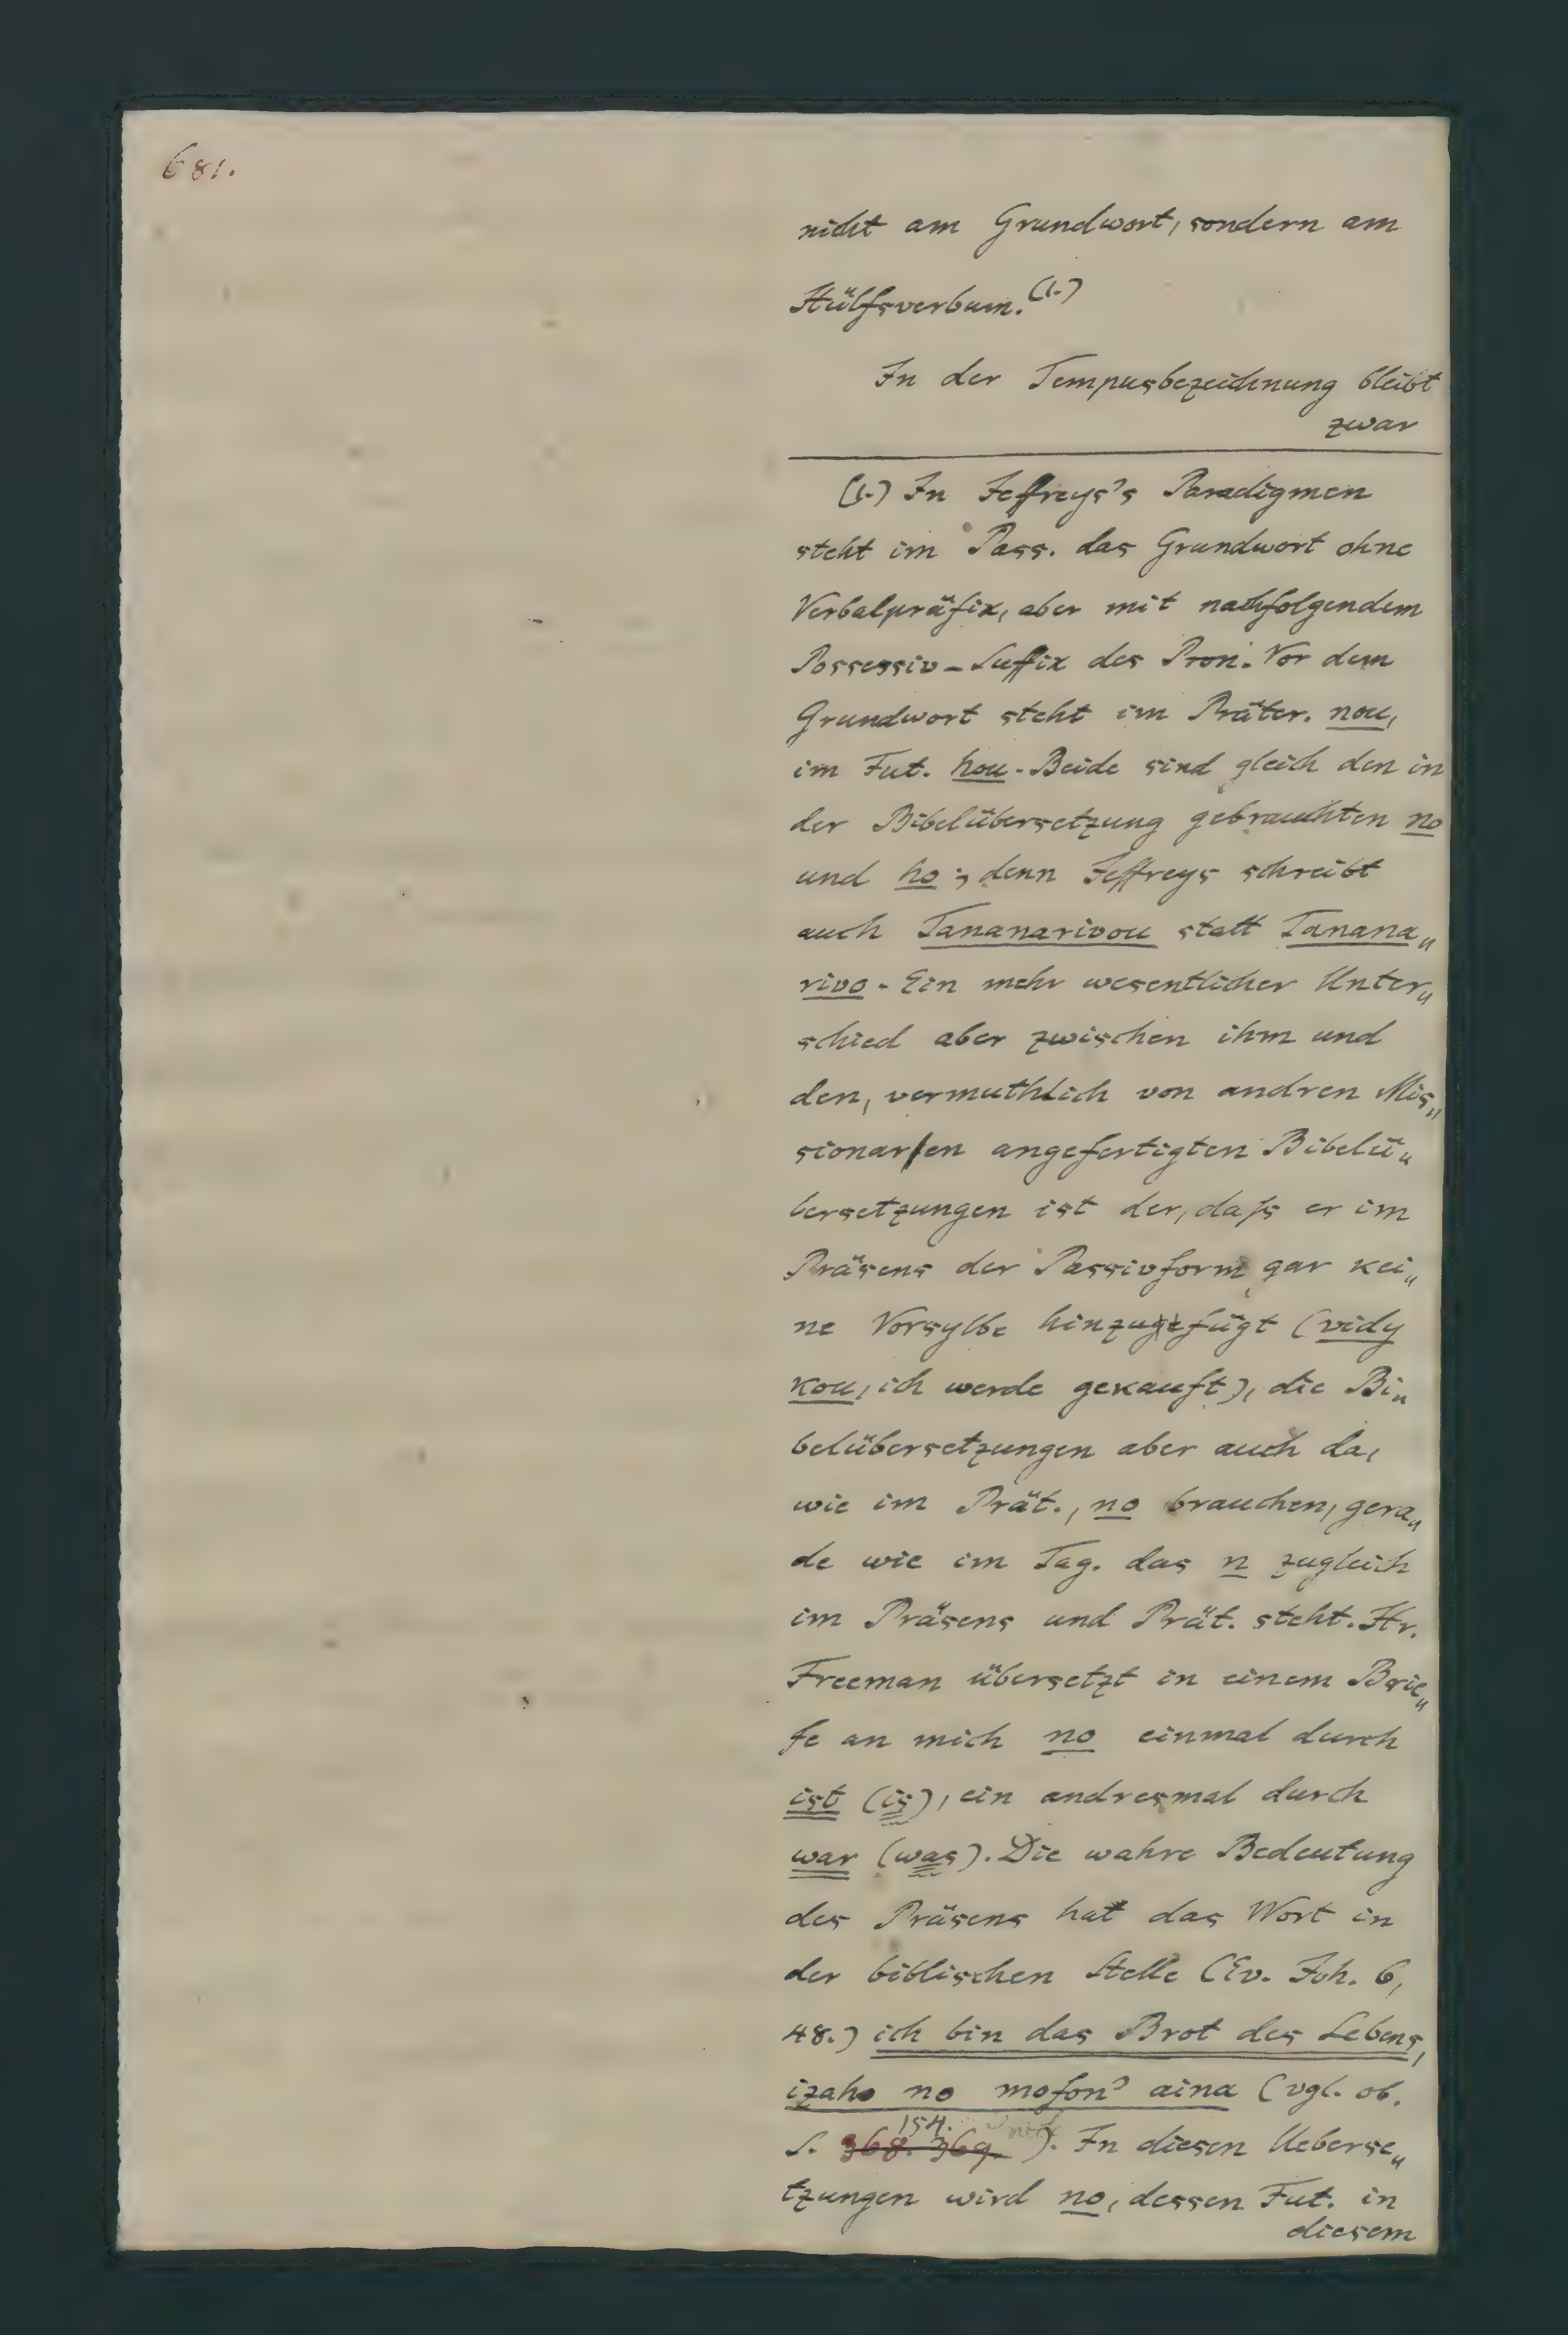 681.
nicht am Grundwort, sondern am
Hülfsverbum.(1.)
In der Tempusbezeichnung bleibt
zwar
(1.) In Jeffreys's Paradigmen
steht im Pass. das Grundwort ohne
Verbalpräfix, aber mit nachfolgendem
Possessiv-Suffix des Pron. Vor dem
Grundwort steht im Präter. nou,
im Fut. hou. Beide sind gleich den in
der Bibelübersetzung gebrauchten no
und ho; denn Jeffreys schreibt
auch Tananarivou statt Tanana„
rivo. Ein mehr wesentlicher Unter„
schied aber zwischen ihm und
den, vermuthlich von andren Mis„
sionarien angefertigten Bibelü„
bersetzungen ist der, daſs er im
Präsens der Passivform gar kei„
ne Vorsylbe hinzugefügt (vidy
kou, ich werde gekauft), die Bi„
belübersetzungen aber auch da,
wie im Prät., no brauchen, gera„
de wie im Tag. das n zugleich
im Präsens und Prät. steht. Hr.
Freeman übersetzt in einem Brie„
fe an mich no einmal durch
ist (is), ein andresmal durch
war (was). Die wahre Bedeutung
des Präsens hat das Wort in
der biblischen Stelle (Ev. Joh. 6,
48.) ich bin das Brot des Lebens,
izaho no mofon' aina (vgl. ob.
154.
S. 368. 369. ). In diesen Ueberse„
tzungen wird no, dessen Fut. in
diesem